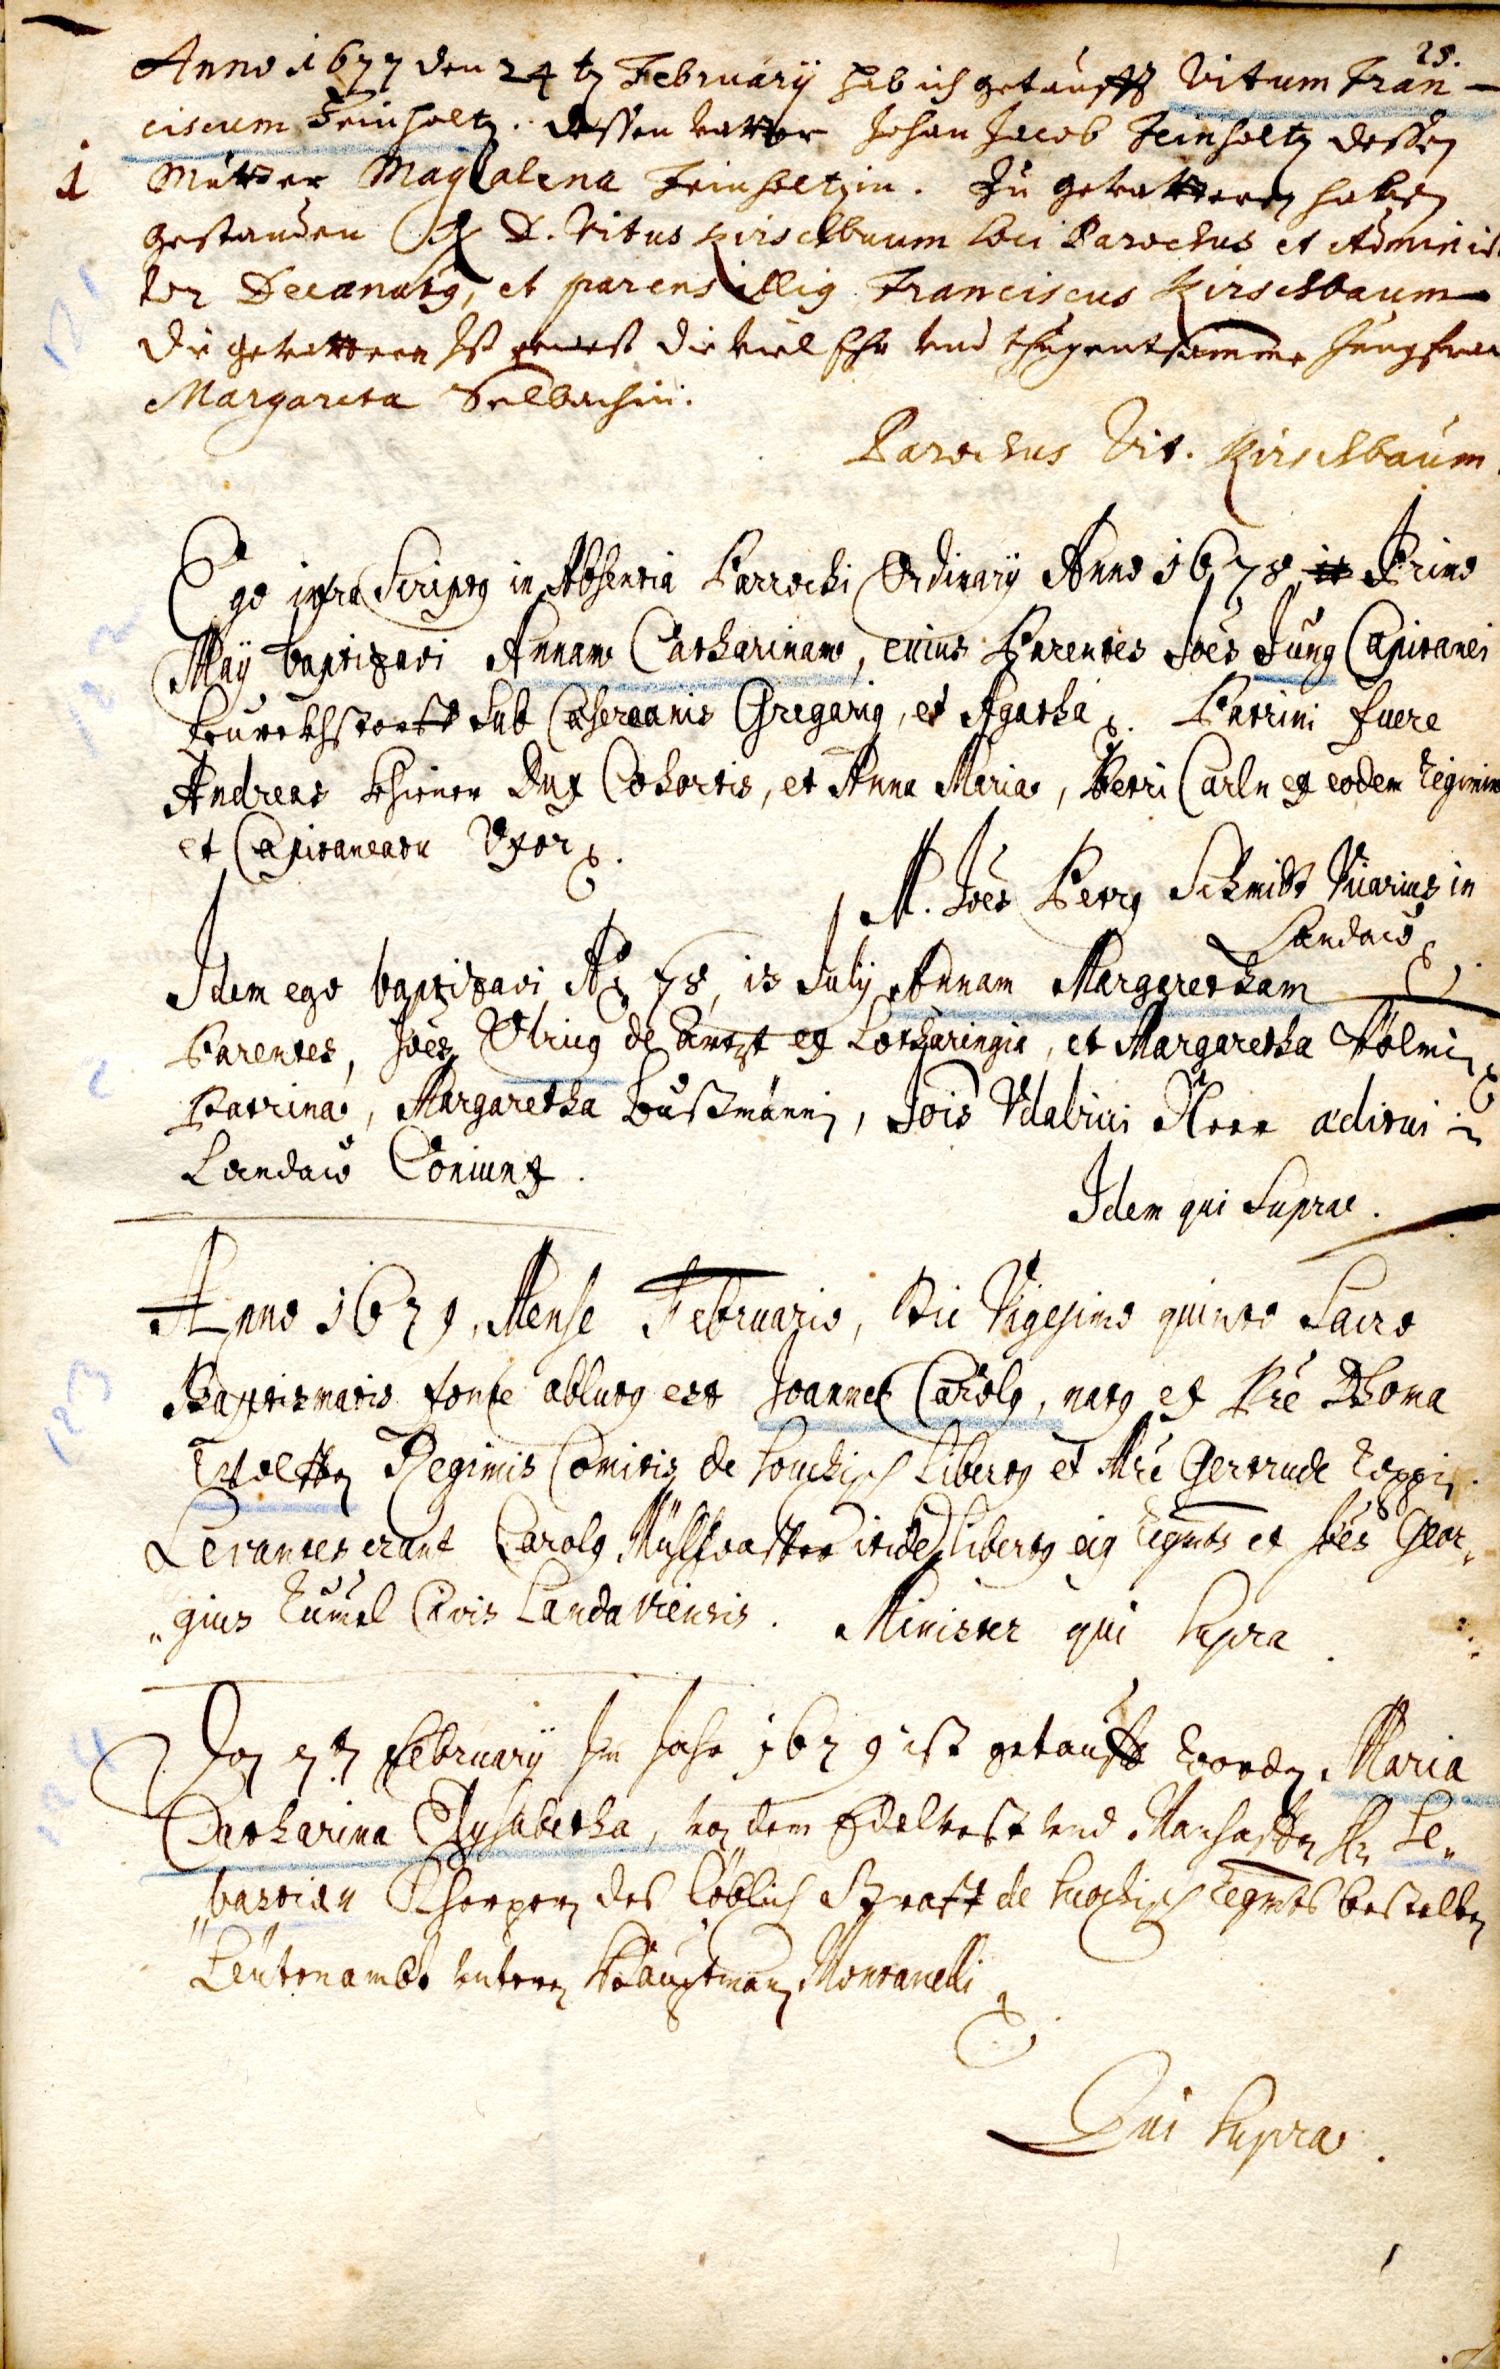 25.
Anno 1677 den 24 tz February hab ich getaufft Vitum Fran-
ciscum Feinholtz. dessen vatter Johan Jacob Feinholtz dessen
1 Mutter Magdalena Feinholtzin. Zu gevatteren haben
gestanden D. Vitus Kirschbaum loci Parochus et Adminis
tor Decanatus, et parens illius Franciscus Kirschbaum
121
die gevatterin ist gewest die viel Ehr und thugentsamme Jungfrau
Margareta Selbachin.
Parochus Vit. Kirschbaum.
Ego infra Scriptus in Absentia Parrochi Ordinarij Anno 1678 Primo
122
Maij baptizavi Annam Catharinam, cuius Parentes Joes Jung Capitanei
sub Gregarius, et Agatha. Patrini fuere
Andreas Dux Cohortis, et Anna Maria, Petri Carln ex eodem Regimin
et Capitaneatu Uxor.
M. Joes Petrus Schmidt Vicarius in
Landaw
Idem ego baptizavi Ao 78, 13 July Annam Margaretham
Parentes, Joes Ulricus de ex Lotharingia, et Margaretha
Patrina, Margaretha Bußmännin, Jois Udalrici aditui in
Landaw Coniunx.
Idem qui Supra.
Anno 1679, Mense Februario, Die Vigesimo quinto Sacro
123
Baptismatis fonte ablutus est Joannes Carolus, natus ex Pre Thoma
Regimis Comitis de Libertus et Mre Gertrude
Levantes erant Carolus itidem Libertus eius Regmts et Joes Geor„
„gius Civis Landaviensis. Minister qui supra.
124
Den 7 tn February Im Jahr 1679 ist getaufft worden Maria
Catharina Elysabetha, von dem Edelvest und Manhafften Hr Se„
„bastian des löblich Graff de Regmts bestelten
Leutenambt unteren Hauptman Montanelli
Qui supra.